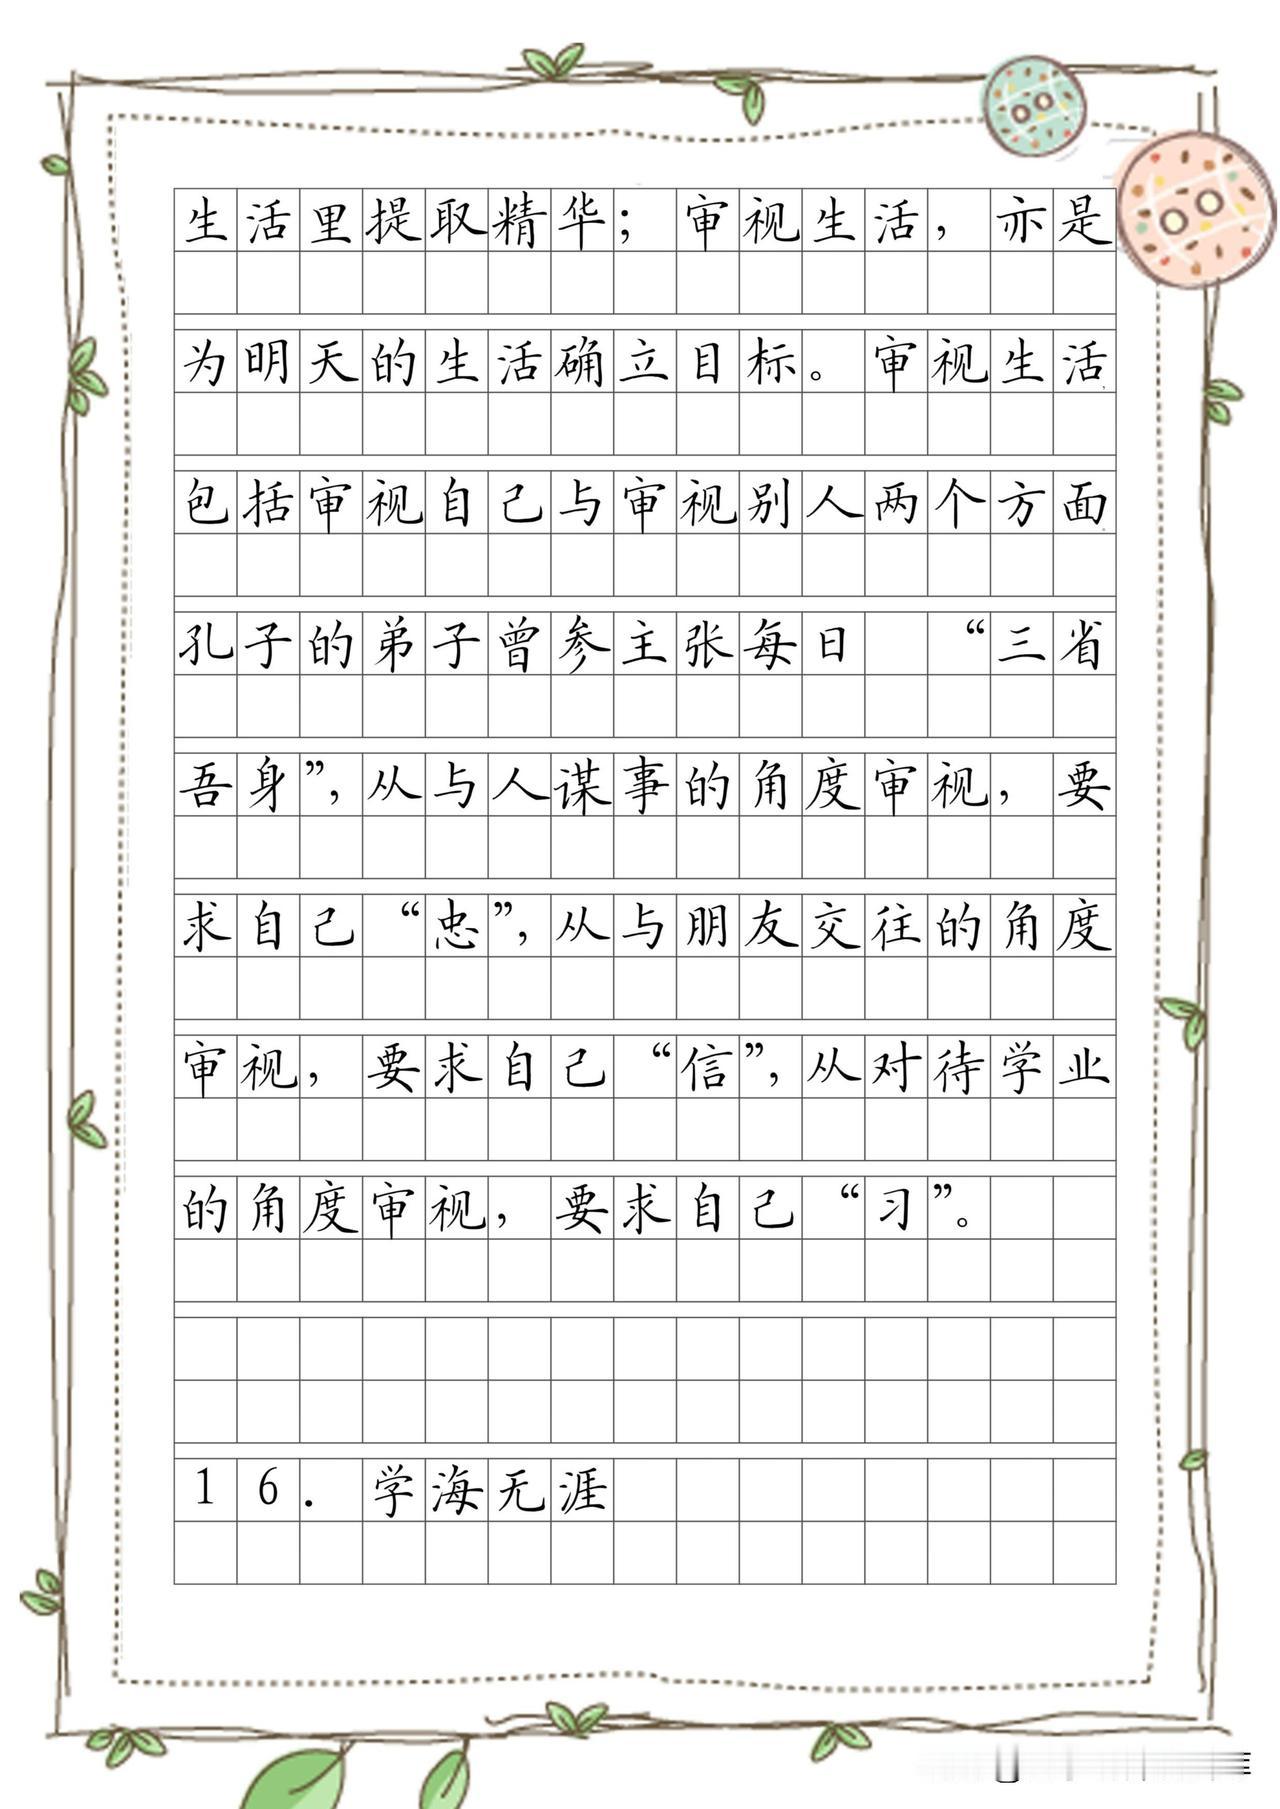 生活里提取精华；审视生活，亦是
为明天的生活确立目标。审视生活
包括审视自己与审视别人两个方面
孔子的弟子曾参主张每日 “三省
吾身”，从与人谋事的角度审视，要
求自己“忠”，从与朋友交往的角度
审视，要求自己“信”，从对待学业
的角度审视，要求自己“习”。
16．学海无涯